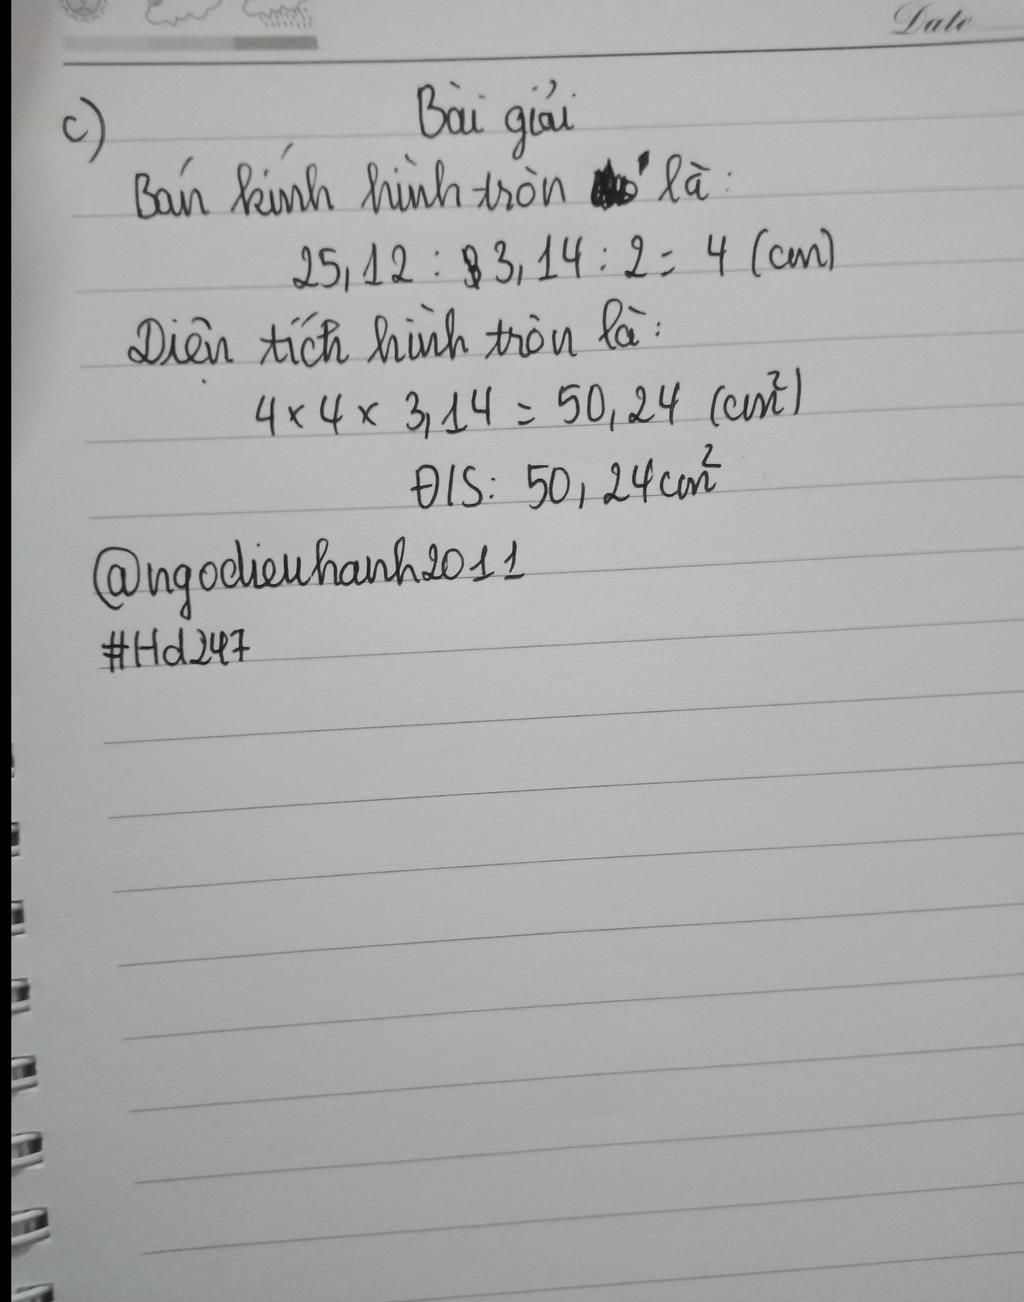 Date
c) Bài giải
Bán kính hình tròn là:
25,12 : 3,14 : 2 = 4 (cm)
Diện tích hình tròn là:
4 × 4 × 3,14 = 50,24 (cm²)
Đ/S: 50,24cm²
@ngodieuhanh2011
#Hd247